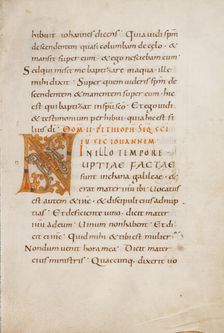 hibuit iohannes dicens Quia uidi spm
descendentem quasi columbam de celo &
mansit super eum & ego nesciebam eum
Sed qui misit me baptizare in aqua ille
mihi dixit Super quem uideris spm de
scendentem & manentem super eum hic
est qui baptizat in spu sco Et ego uidi
& testimonium perhibui quia hic est
filius di
IN ILLO TEMPORE
NUPTIAE FACTAE
sunt in chana galileae & erat
mater ihu ibi Uocatus
est autem ihs & discipuli eius ad nup
tias Et deficiente uino dicit mater
ihu ad eum Uinum non habent Et di
cit ei ihs Quid mihi & tibi est mulier
Nondum uenit hora mea Dicit mater
eius ministris Quaecumq dixerit uo